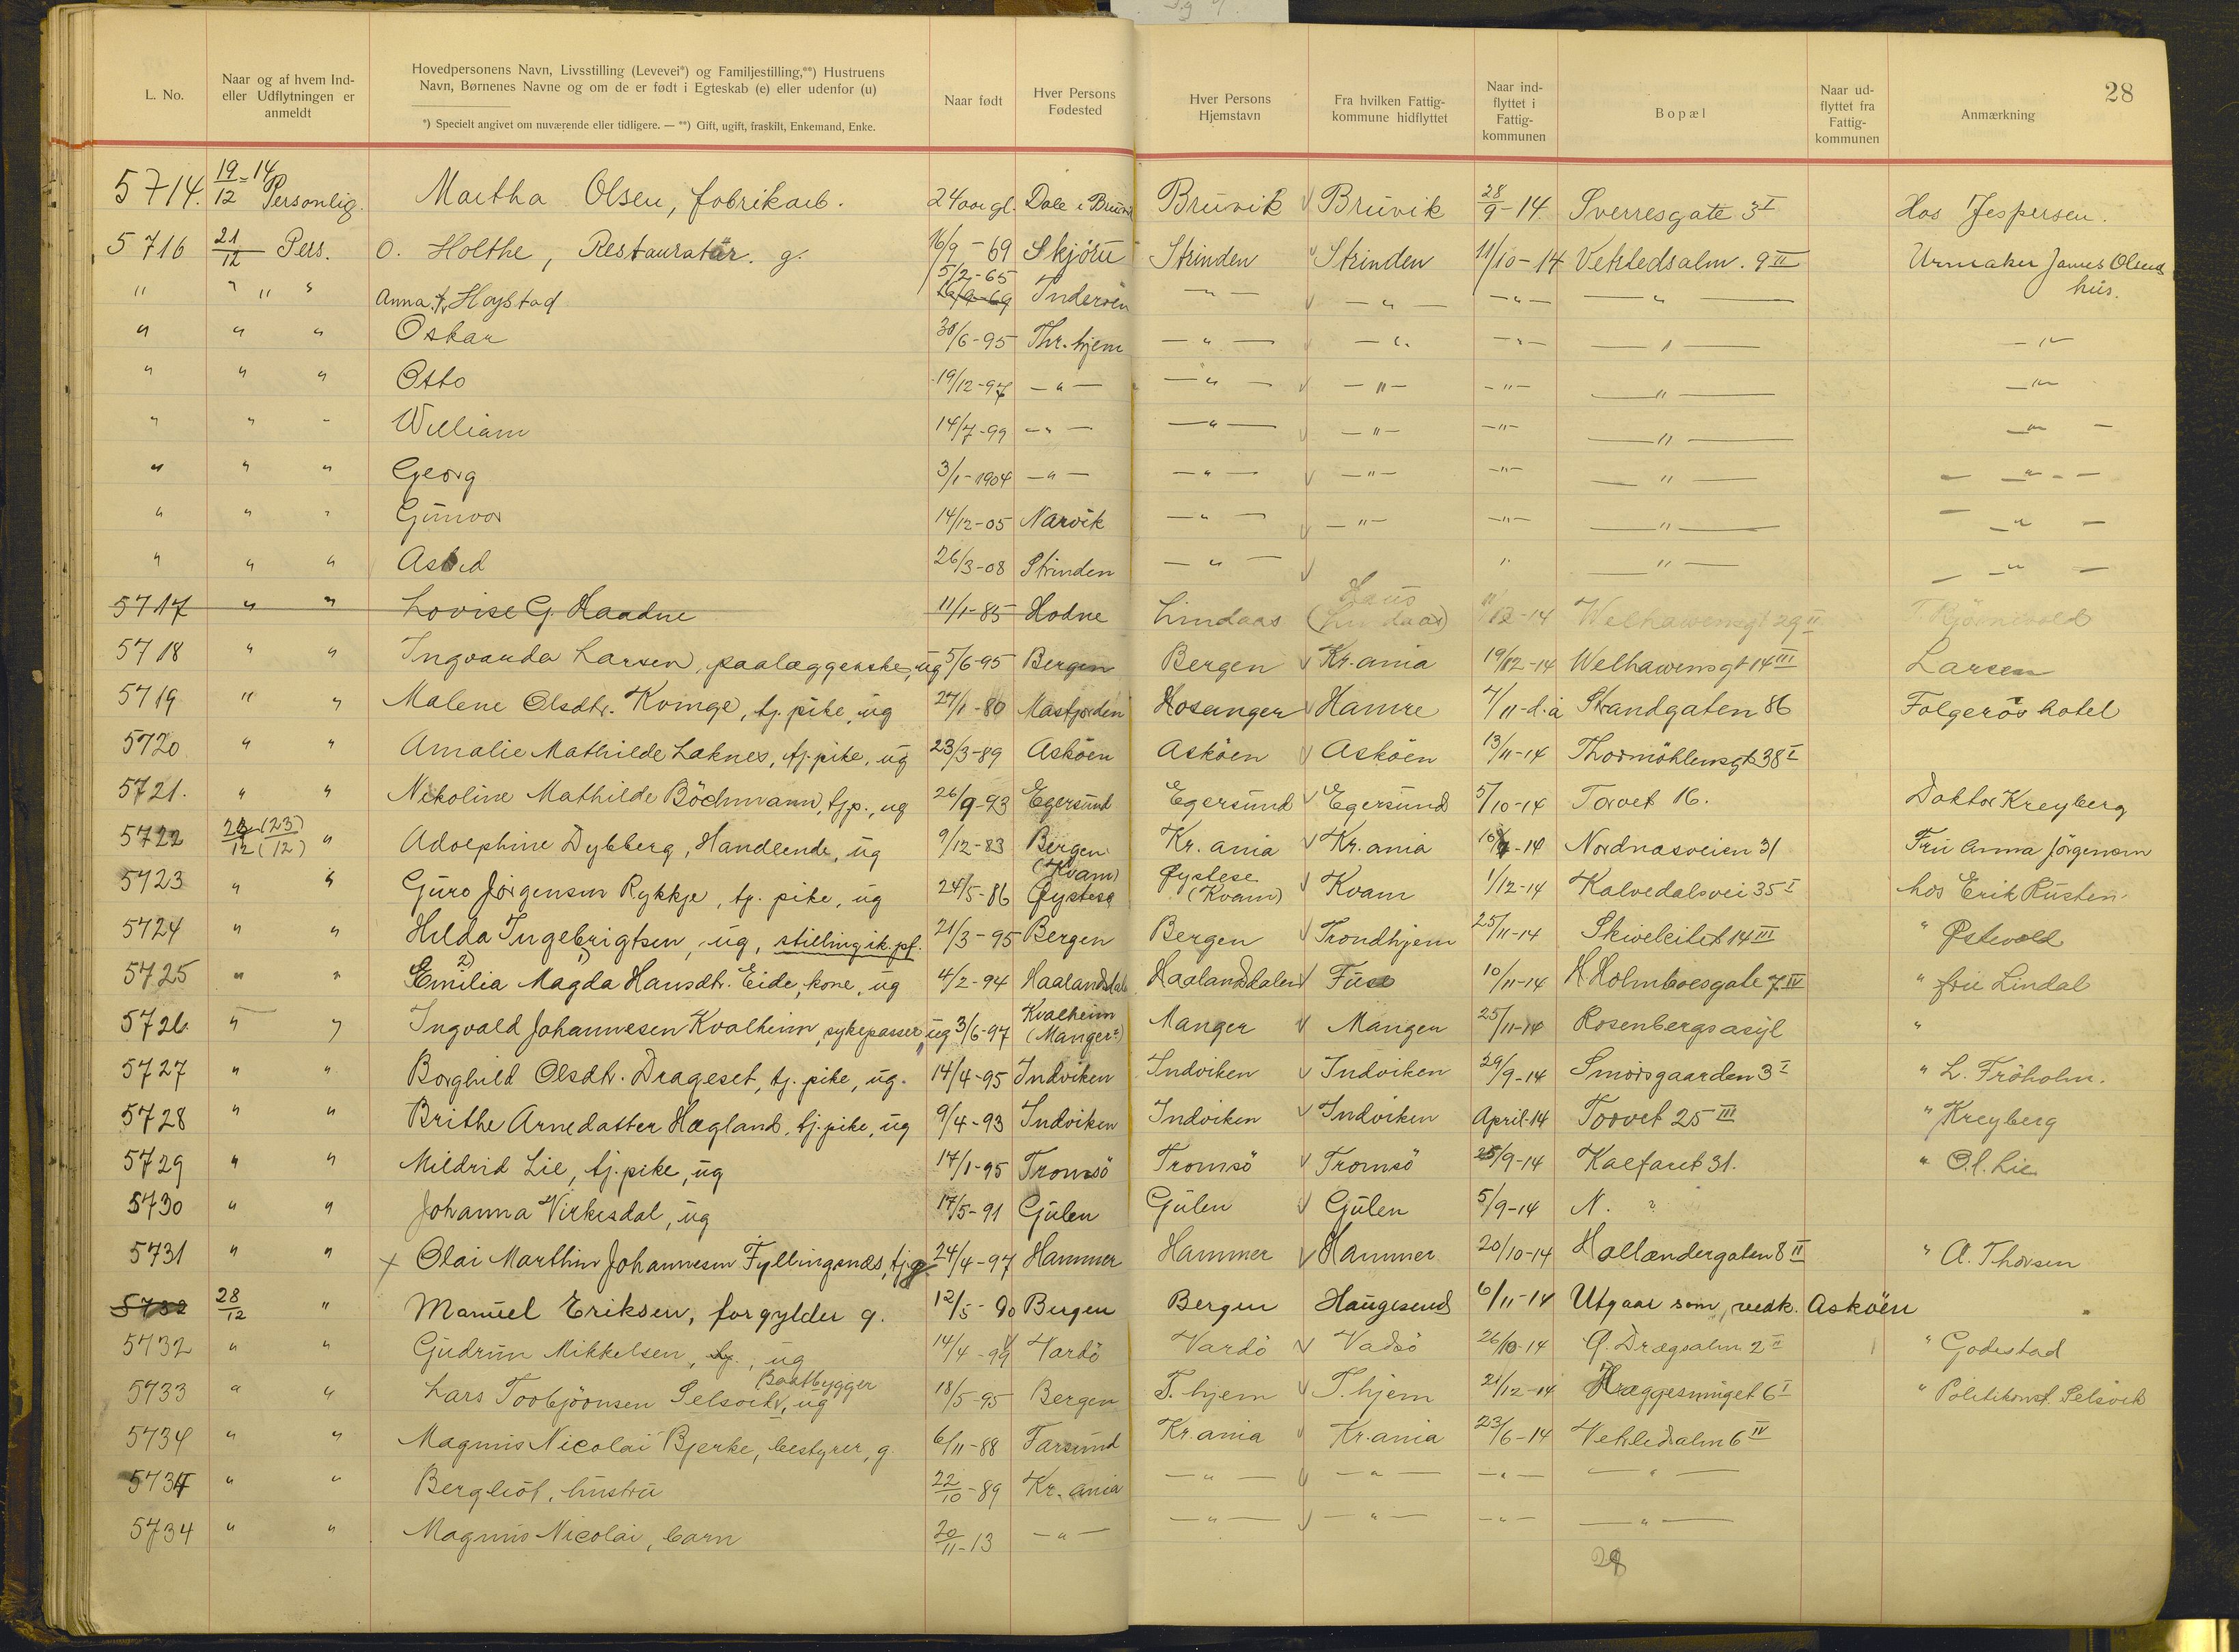 28
L. No. | Naar og af hvem Ind- eller Udflytningen er anmeldt | Hovedpersonens Navn, Livsstilling (Levevei*) og Familjestilling,**) Hustruens Navn, Børnenes Navne og om de er født i Egteskab (e) eller udenfor (u) | Naar født | Hver Persons Fødested | Hver Persons Hjemstavn | Fra hvilken Fattig-kommune hidflyttet | Naar ind-flyttet i Fattig-kommunen | Bopæl | Naar ud-flyttet fra Fattig-kommunen | Anmærkning
*) Specielt angivet om nuværende eller tidligere. — **) Gift, ugift, fraskilt, Enkemand, Enke.
5714. 19/12-14 Personlig. Martha Olsen, fabrikarb. 24 aar gl. Dale i Bruvik Bruvik Bruvik 28/9-14 Sverresgate 3 I Hos Jespersen.
5716 21/12 Pers. O. Holthe, Restauratør. g. 16/9-69 Skjørn Strinden Strinden 11/10-14 Vetrledsalm. 9 II Urmaker James Olsens hus.
" " " " Anna f. Høystad 5/2-65 26/9-69 Inderøen -"- -"- -"- -"-
" " " Oskar 30/6-95 Thr.hjem -"- -"- -"- -"- -"-
" " " Otto 19/12-97 -"- -"- -"- -"- -"- -"-
" " " William 14/7-99 -"- -"- -"- -"- -"- -"-
" " " Georg 3/1-1904 -"- -"- -"- -"- -"- -"-
" " " Gunvor 14/12-05 Narvik -"- -"- -"- -"- -"-
" " " Astrid 26/3-08 Strinden -"- " -"- -"-
5717 " " Lovise G. Haadne 11/1-85 Hodne Lindaas Haus (Lindaas) 11/12-14 Welhavensgt 29 II T. Bjørnevold
5718 " " Ingvanda Larsen, paalæggerske, ug 5/6-95 Bergen Bergen Kr.ania 19/12-14 Welhavensgt 14 III Larsen
5719 " " Malene Olsdtr. Kvinge, tj. pike, ug 27/1-80 Masfjorden Hosanger Hamre 7/11-d.å Strandgaten 86 Folgerøs hotel
5720 " " Amalie Mathilde Laknes, tj. pike, ug 23/3-89 Askøen Askøen Askøen 13/11-14 Thormøhlensgt. 38 I
5721. " " Nikoline Mathilde Böchmann, tjp., ug 26/9-93 Egersund Egersund Egersund 5/10-14 Torvet 16. Doktor Kreyberg
5722 (23)/12 (12) " Adolphine Dybberg, Handlende, ug 9/12-83 Bergen Kr.ania Kr.ania Nordnæsveien 31 Fru Anna Jørgensen
5723 " " Guro Jørgensen Rykkje, tj. pike, ug 24/5-86 (Kvam) Øystese Øystese (Kvam) Kvam 1/12-14 Kalvedalsvei 35 I hos Erik Rusten.
5724 " " Hilda Ingebrigtsen, ug, stilling ik. pf. 21/3-95 Bergen Bergen Trondhjem 25/11-14 Skiveleitet 14 III " Østevold
5725 " " 2) Emilia 1) Magda Hansdtr. Eide, kone, ug 4/2-94 Haalandsdalen Haalandsdalen Fuse 10/11-14 H. Holmboesgate 7 IV " fru Lindal
5726. " " Ingvald Johannesen Kvalheim, sykepasser, ug 3/6-97 Kvalheim (Manger?) Manger Manger 25/11-14 Rosenbergsasyl "
5727 " " Borghild Olsdtr. Drageset, tj. pike, ug. 14/4-95 Indviken Indviken Indviken 29/9-14 Smørsgaarden 3 I " L. Frøholm.
5728 " " Brithe Arnedatter Hægland, tj. pike, ug 9/4-93 Indviken Indviken Indviken April-14 Torvet 25 III " Kreyberg
5729 " " Mildrid Lie, tj. pike, ug 17/1-95 Tromsö Tromsö Tromsö 25/9-14 Kalfaret 31. " O. L. Lie
5730 " " Johanna Virkesdal, ug 17/5-91 Gulen Gulen Gulen 5/9-14 N. ?
5731 " " x Olai Marthin Johannesen Fyllingsnæs, tj.g. 24/4-97 Hammer Hammer Hammer 20/10-14 Hollændergaten 8 II " A. Thorsen
5732 28/12 " Manuel Eriksen, forgylder g. 12/5-90 Bergen Bergen Haugesund 6/11-14 Utgaar som vedk. Askøen "
5732 " " Gudrun Mikkelsen, tj., ug 14/4-99 Vardö Vardö Vadsö 26/10-14 Ø. Drægsalm 2 II " Godestad
5733 " " Lars Torbjörnsen Selsvik, ug Baatbygger 18/5-95 Bergen T.hjem T.hjem 21/12-14 Kræggesmuget 6 I " Politikonst. Selsvik
5734 " " Magnus Nicolai Bjerke, bestyrer, g. 6/11-88 Farsund Kr.ania Kr.ania 23/6-14 Vetrledsalm 6 IV
5734 " " Bergliot, hustru 22/10-89 Kr.ania -"- -"- -"- -"-
5734 " " Magnus Nicolai, barn 20/11-13 -"- -"- -"- -"- -"-
28